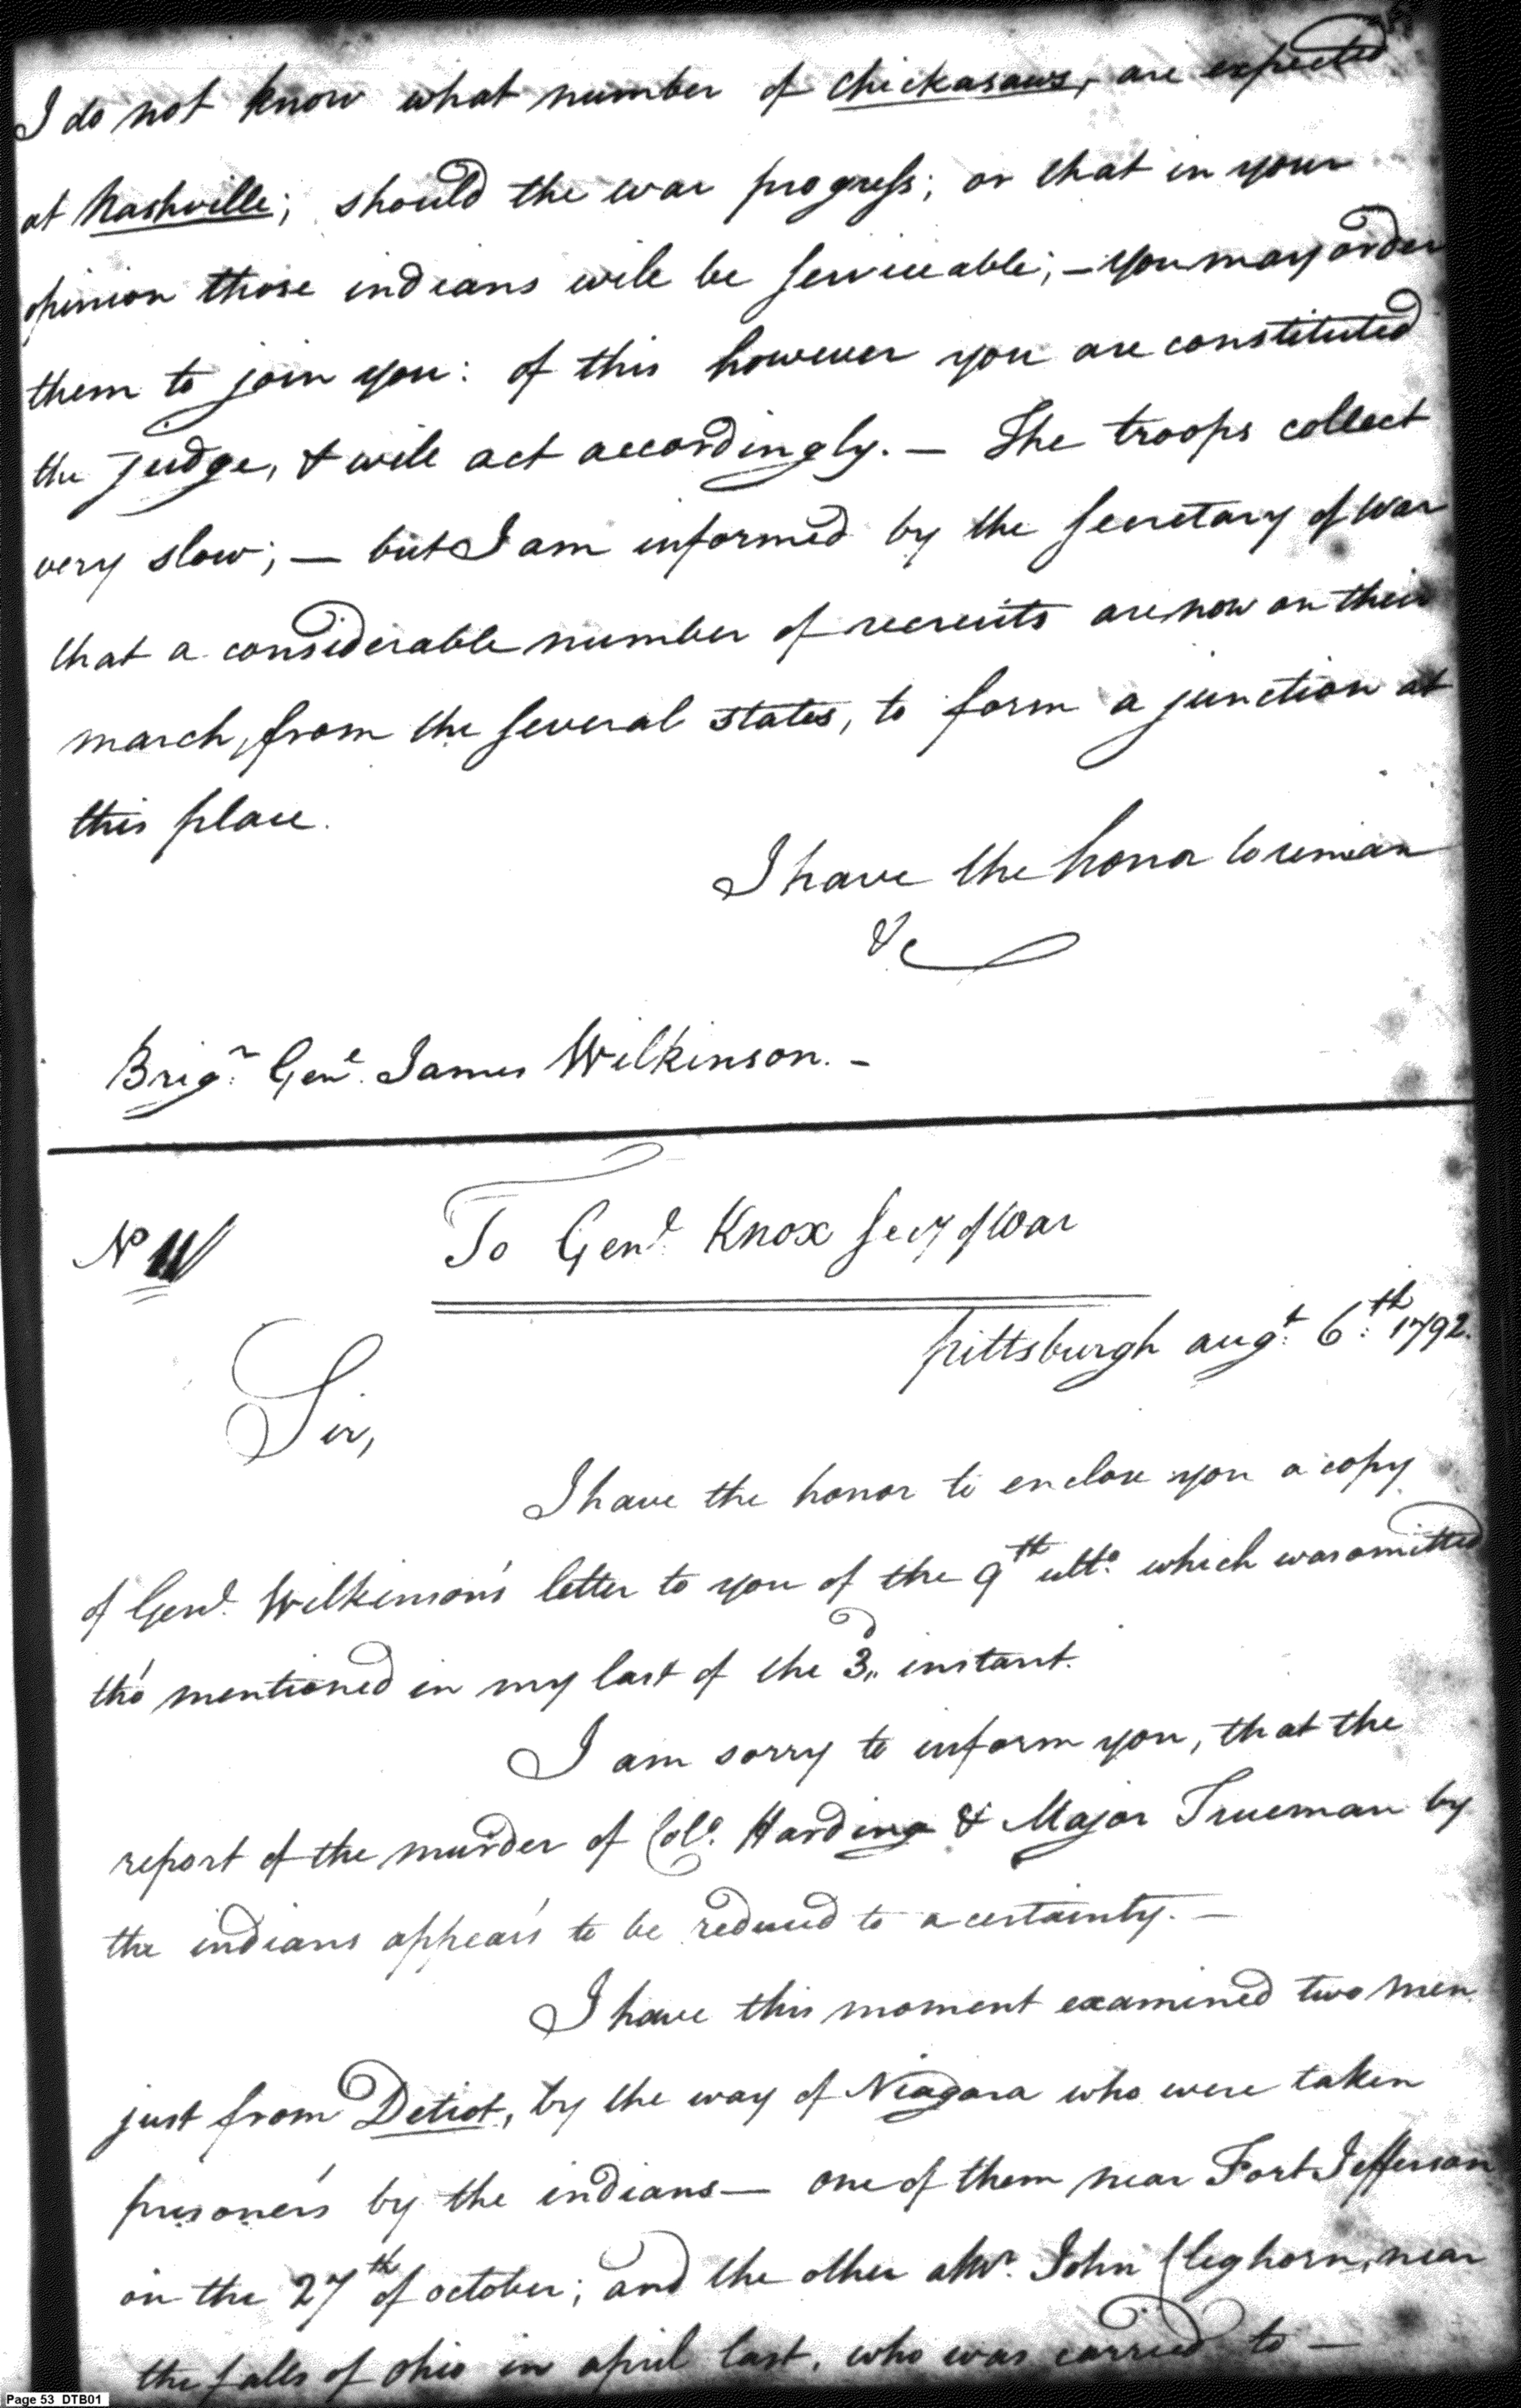 I do not know what number of Chickasaws, are expected
at Nashville; should the war progress; or that in your
opinion those indians will be serviceable; – you may order
them to join you: of this however you are constituted
the Judge, & will act accordingly. – The troops collect
very slow; – but I am informed by the secretary of war
that a considerable number of recruits are now on their
march, from the several states, to form a junction at
this place.
I have the honor to remian
&c
Brigr. Genl. James Wilkinson. –
No 11
To Genl. Knox Secy of War
pittsburgh augt. 6th: 1792.
Sir,
I have the honor to enclose you a copy
of Genl. Wilkinson's letter to you of the 9th ulto. which was omitted
tho' mentioned in my last of the 3d instant.
I am sorry to inform you, that the
report of the murder of Colo. Harding & Major Trueman by
the indians appears to be reduced to a certainty. –
I have this moment examined two men
just from Detiot, by the way of Niagara who were taken
prisoners by the indians – one of them near Fort Jefferson
on the 27th of october; and the other a Mr. John Cleghorn, near
the falls of ohio in april last, who was carried to –
Page 53 DTB01